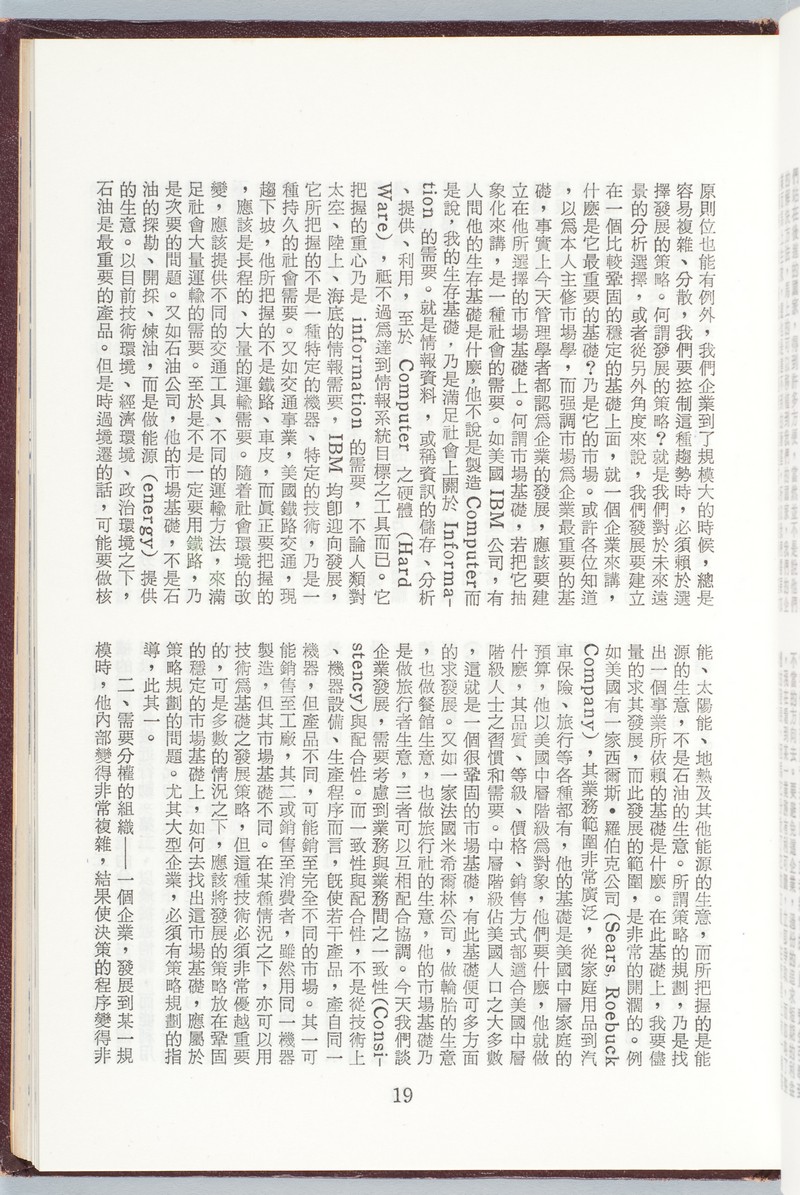 原則位也能有例外，我們企業到了規模大的時候，總是
容易複雜、分散，我們要控制這種趨勢時，必須賴於選
擇發展的策略。何謂發展的策略？就是我們對於未來遠
景的分析選擇，或者從另外角度來說，我們發展要建立
在一個比較鞏固的穩定的基礎上面，就一個企業來講，
什麼是它最重要的基礎？乃是它的市場。或許各位知道
，以為本人主修市場學，而强調市場爲企業最重要的基
礎，事實上今天管理學者都認爲企業的發展，應該要建
立在他所選擇的市場基礎上。何謂市場基礎，若把它抽
象化來講，是一種社會的需要。如美國 IBM 公司，有
人問他的生存基礎是什麼，他不說是製造 Computer 而
是說，我的生存基礎，乃是滿足社會上關於 Informa-
tion 的需要。就是情報資料，或稱資訊的儲存、分析
、提供、利用，至於 Computer 之硬體 (Hard
Ware)，祗不過爲達到情報系統目標之工具而已。它
把握的重心乃是 information 的需要，不論人類對
太空、陸上、海底的情報需要，IBM 均卽迎向發展，
它所把握的不是一種特定的機器、特定的技術，乃是一
種持久的社會需要。又如交通事業，美國鐵路交通，現
趨下坡，他所把握的不是鐵路、車皮，而眞正要把握的
，應該是長程的、大量的運輸需要。隨着社會環境的改
變，應該提供不同的交通工具、不同的運輸方法，來滿
足社會大量運輸的需要。至於是不是一定要用鐵路，乃
是次要的問題。又如石油公司，他的市場基礎，不是石
油的探勘、開採、煉油，而是做能源 (energy) 提供
的生意。以目前技術環境、經濟環境、政治環境之下，
石油是最重要的產品。但是時過境遷的話，可能要做核
能、太陽能、地熱及其他能源的生意，而所把握的是能
源的生意，不是石油的生意。所謂策略的規劃，乃是找
出一個事業所依賴的基礎是什麼。在此基礎上，我要儘
量的求其發展，而此發展的範圍，是非常的開濶的。例
如美國有一家西爾斯・羅伯克公司 (Sears, Roebuck
Company)，其業務範圍非常廣泛，從家庭用品到汽
車保險、旅行等各種都有，他的基礎是美國中層家庭的
預算，他以美國中層階級爲對象，他們要什麼，他就做
什麼，其品質、等級、價格、銷售方式都適合美國中層
階級人士之習慣和需要。中層階級佔美國人口之大多數
，這就是一個很鞏固的市場基礎，有此基礎便可多方面
的求發展。又如一家法國米希爾林公司，做輪胎的生意
，也做餐館生意，也做旅行社的生意，他的市場基礎乃
是做旅行者生意，三者可以互相配合協調。今天我們談
企業發展，需要考慮到業務與業務間之一致性 (Consi-
stency) 與配合性。而一致性與配合性，不是從技術上
、機器設備、生產程序而言，旣使若干產品，產自同一
機器，但產品不同，可能銷至完全不同的市場。其一可
能銷售至工廠，其二或銷售至消費者，雖然用同一機器
製造，但其市場基礎不同。在某種情況之下，亦可以用
技術爲基礎之發展策略，但這種技術必須非常優越重要
的，可是多數的情況之下，應該將發展的策略放在鞏固
的穩定的市場基礎上，如何去找出這市場基礎，應屬於
策略規劃的問題。尤其大型企業，必須有策略規劃的指
導，此其一。
二、需要分權的組織——一個企業，發展到某一規
模時，他內部變得非常複雜，結果使決策的程序變得非
19